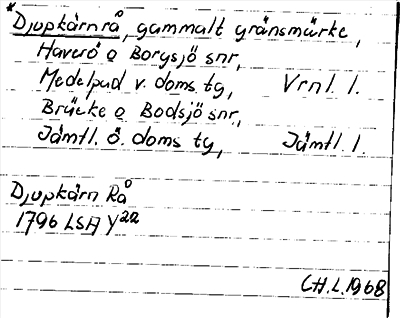 *Djupkärnrå, gammalt gränsmärke,
Haverö o Borgsjö snr,
Medelpad v. doms tg, Vrnl. l.
Bräcke o Bodsjö snr,
Jämtl. ö. doms tg, Jämtl. l.
Djupkärn Rå
1796 LSA Y22
C.H.L. 1968